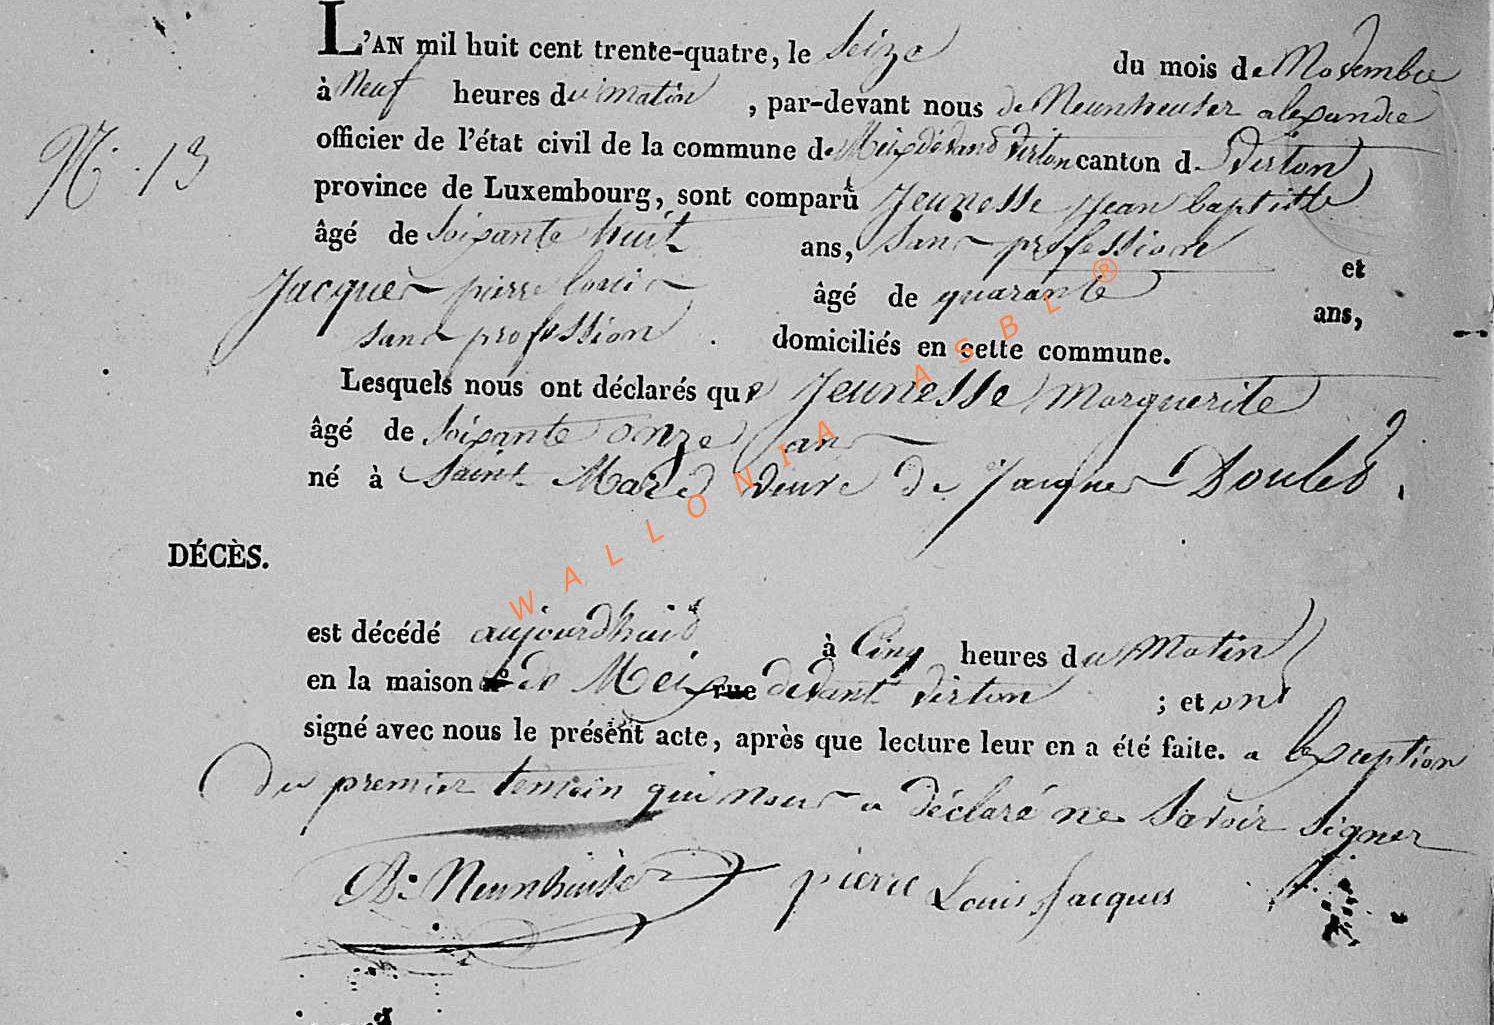 L'AN mil huit cent trente-quatre, le seize du mois de Novembre
à Neuf heures du matin, par-devant nous de Neunheuser alexandre
officier de l'état civil de la commune de Meix devant virton canton de Virton
N. 13
province de Luxembourg, sont comparu Jeunesse jean baptiste
âgé de soixante huit ans, sans profession et
Jacques pierre louis âgé de quarante ans,
sans profession. domiciliés en cette commune.
Lesquels nous ont déclarés que Jeunesse Marguerite
âgé de soixante onze ans
né à Saint Mard veuve de Jacques
DÉCÈS.
est décédé aujourdhuid à Cinq heures du Matin
en la maison n° de Meix rue devant virton ; et ont
signé avec nous le présent acte, après que lecture leur en a été faite. a lexception
du premier temoin qui nous a déclaré ne savoir signer
Neunheuser pierre Louis Jacques
WALLONIA ASBL ®